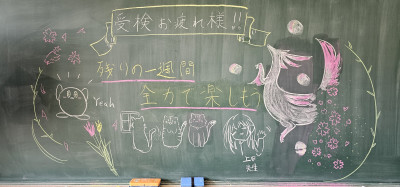 受検お疲れ様!!
残りの一週間
全力で楽しもう
Yeah
上田
先生